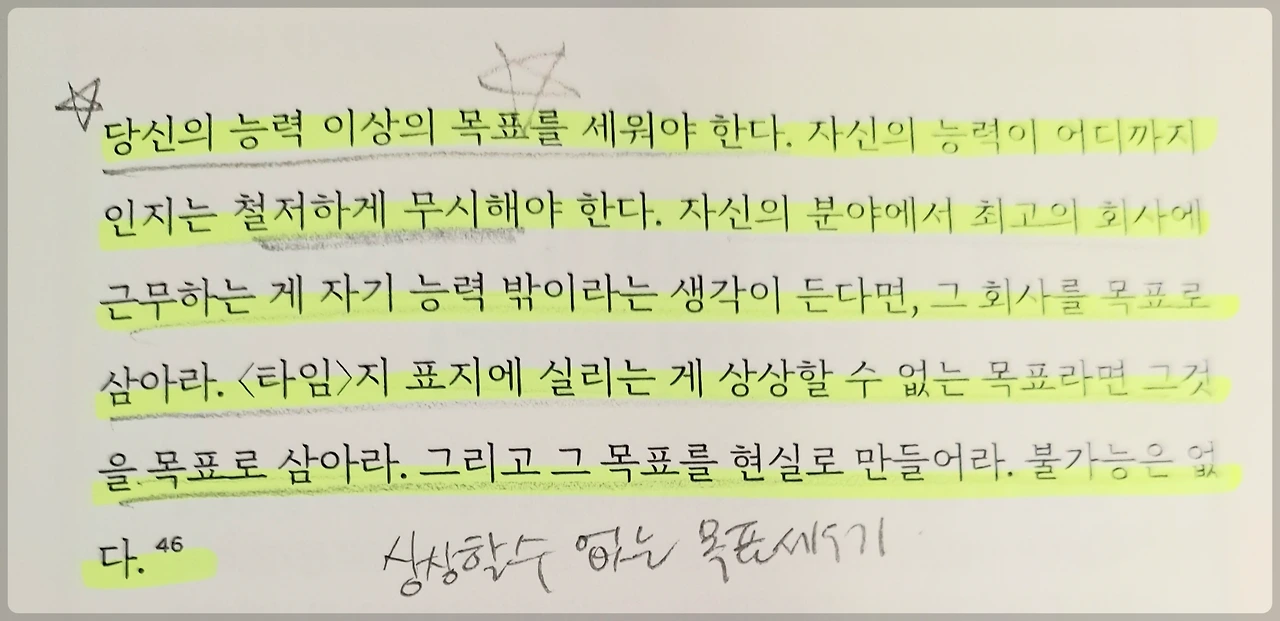 당신의 능력 이상의 목표를 세워야 한다. 자신의 능력이 어디까지
인지는 철저하게 무시해야 한다. 자신의 분야에서 최고의 회사에
근무하는 게 자기 능력 밖이라는 생각이 든다면, 그 회사를 목표로
삼아라. 〈타임〉지 표지에 실리는 게 상상할 수 없는 목표라면 그것
을 목표로 삼아라. 그리고 그 목표를 현실로 만들어라. 불가능은 없
다. 46
상상할수 없는 목표세우기